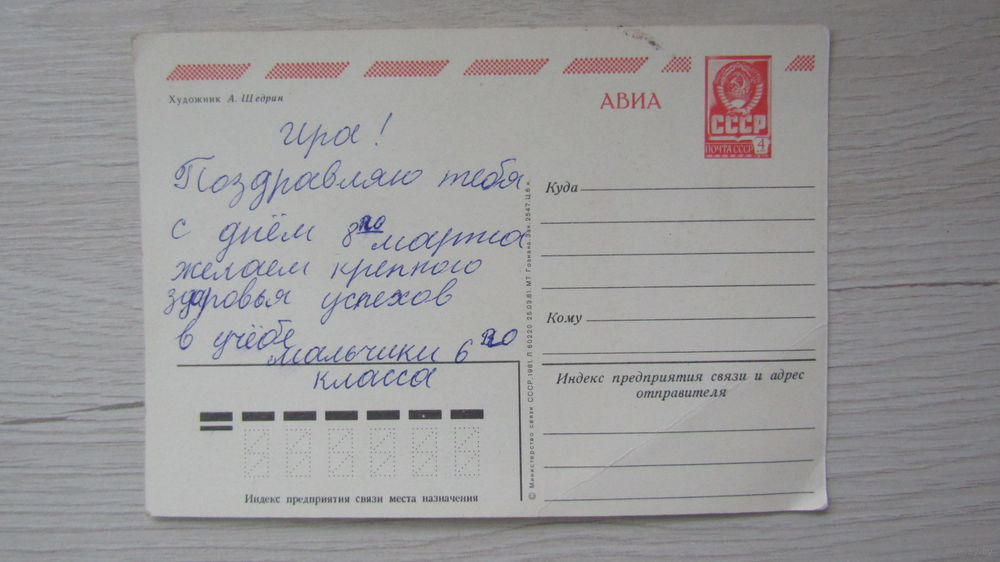 Художник А. Щедрин
АВИА
СССР
ПОЧТА СССР 4
Ира!
Поздравляю тебя
с днём 8го марта
желаем крепкого
здоровья успехов
в учёбе
мальчики 6го
класса
Куда
Кому
Индекс предприятия связи и адрес
отправителя
Индекс предприятия связи места назначения
© Министерство связи СССР, 1981. Л 60220 25.03.81. МТ Гознака. Зак. 2547. Ц. 6 к.